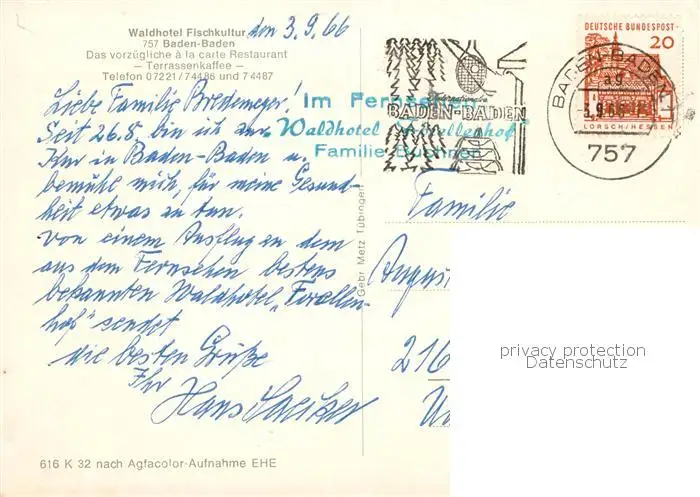 Waldhotel Fischkultur
757 Baden-Baden
Das vorzügliche à la carte Restaurant
— Terrassenkaffee —
Telefon 07221/74486 und 74487
den 3.9.66
Liebe Familie Bredemeyer!
Seit 26.8. bin ich zur
Kur in Baden-Baden u.
bemühe mich, für meine Gesund-
heit etwas zu tun.
Von einem Ausflug zu dem
aus dem Fernsehen bestens
bekannten Waldhotel „Forellen-
hof" sendet
die besten Grüße
Ihr
Hans
Im Fernsehen
Waldhotel Forellenhof
Familie
BADEN-BADEN
DEUTSCHE BUNDESPOST
20
LORSCH/HESSEN
BADEN-BADEN 1
ag
3.9.66
757
Familie
August
216
Gebr. Metz Tübingen
privacy protection
Datenschutz
616 K 32 nach Agfacolor-Aufnahme EHE